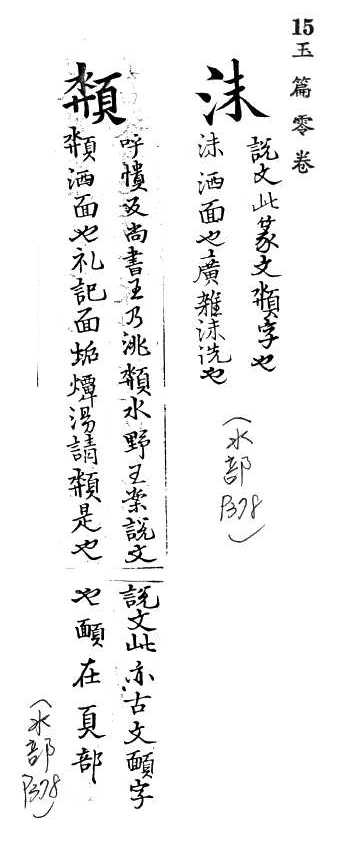 15玉篇零卷
沬
說文此篆文䫶字也
沬洒面也廣雅沬洗也
(水部P378)
䫶
呼憒反尚書王乃洮䫶水野王案說文
䫶洒面也礼記面垢燂湯請䫶是也
說文此亦古文頮字
也頮在頁部
(水部P378)